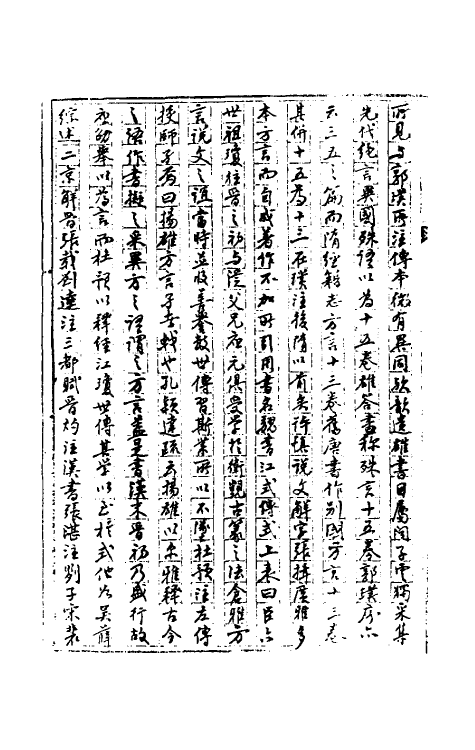 所見与郭璞所注傳本微有異同欤歆遺雄書曰屬聞子雲獨采集
先代絕言異國殊語以為十五卷雄答書稱殊言十五卷郭璞序亦
云三五之篇而隋經籍志方言十三卷舊唐書作別國方言十三卷
其併十五為十三在璞注後隋以前矣許慎說文解字張揖廣雅多
本方言而自成著作不加所引用書名魏書江式傳式上表曰臣六
世祖瓊往晉之初与從父兄應元俱受學於衛覬古篆之法倉雅方
言說文之誼當時並收善譽數世傳習斯業所以不墜杜預注左傳
授師孑焉曰揚雄方言孑者戟也孔穎達疏云揚雄以尔雅釋古今
之語作書擬之采異方之語謂之方言蓋是書漢末晉初乃盛行故
應劭舉以為言而杜預以釋經江瓊世傳其學以至於式他如吳薛
綜述二京解晉張載劉逵注三都賦晉灼注漢書張湛注列子宋裴